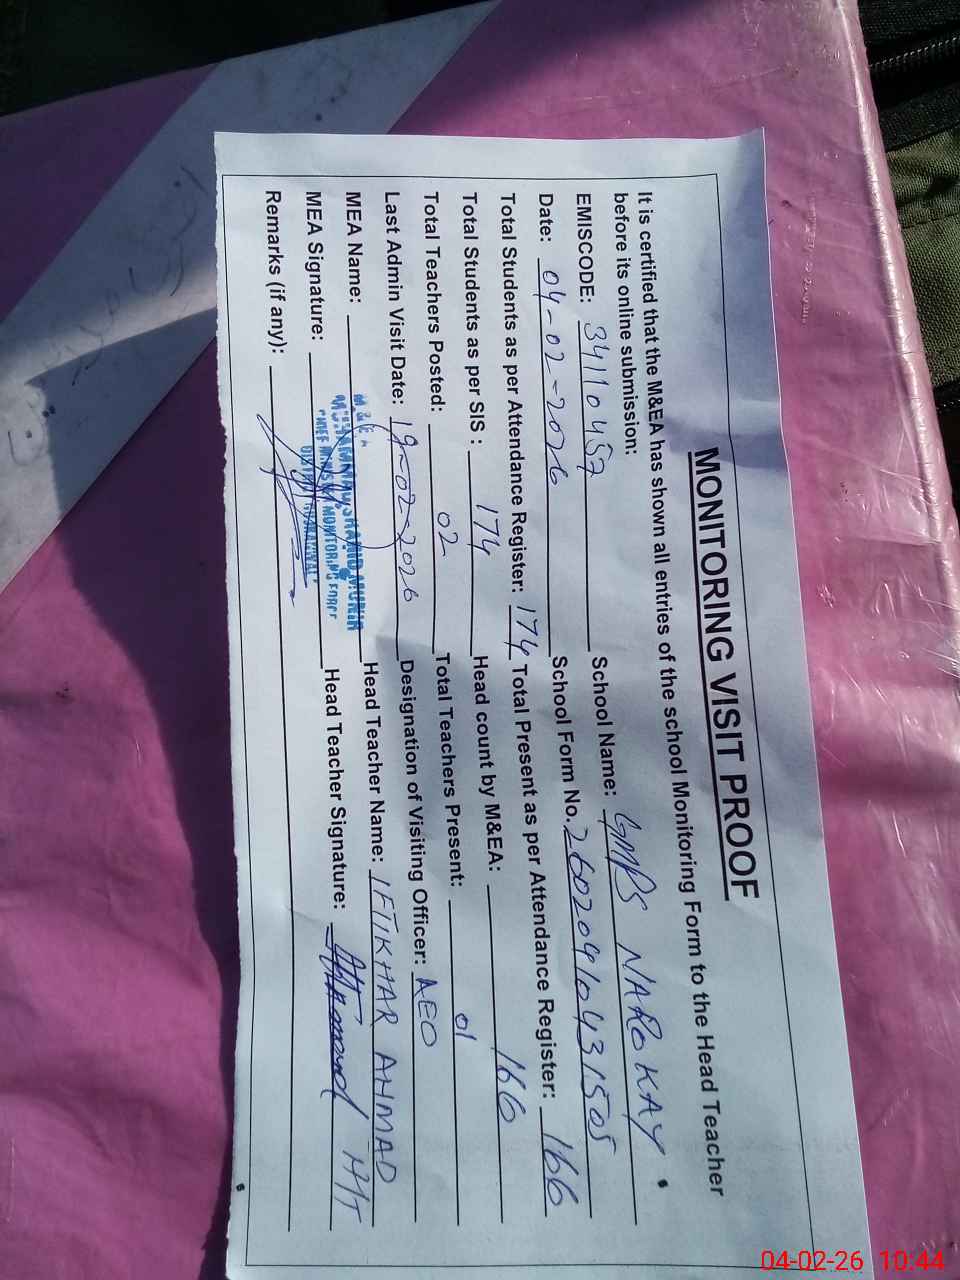 MONITORING VISIT PROOF
It is certified that the M&EA has shown all entries of the school Monitoring Form to the Head Teacher
before its online submission:
EMISCODE: 34110457 School Name: GMPS NAROKAY
Date: 04-02-2026 School Form No. 26020410431505
Total Students as per Attendance Register: 174 Total Present as per Attendance Register: 166
Total Students as per SIS : 174 Head count by M&EA: 166
Total Teachers Posted: 02 Total Teachers Present: 01
Last Admin Visit Date: 19-02-2026 Designation of Visiting Officer: AEO
MEA Name: M & EA Head Teacher Name: IFTIKHAR AHMAD
MUNIR
MONITORING FORCE
MEA Signature: Head Teacher Signature:
Remarks (if any):
04-02-26 10:44